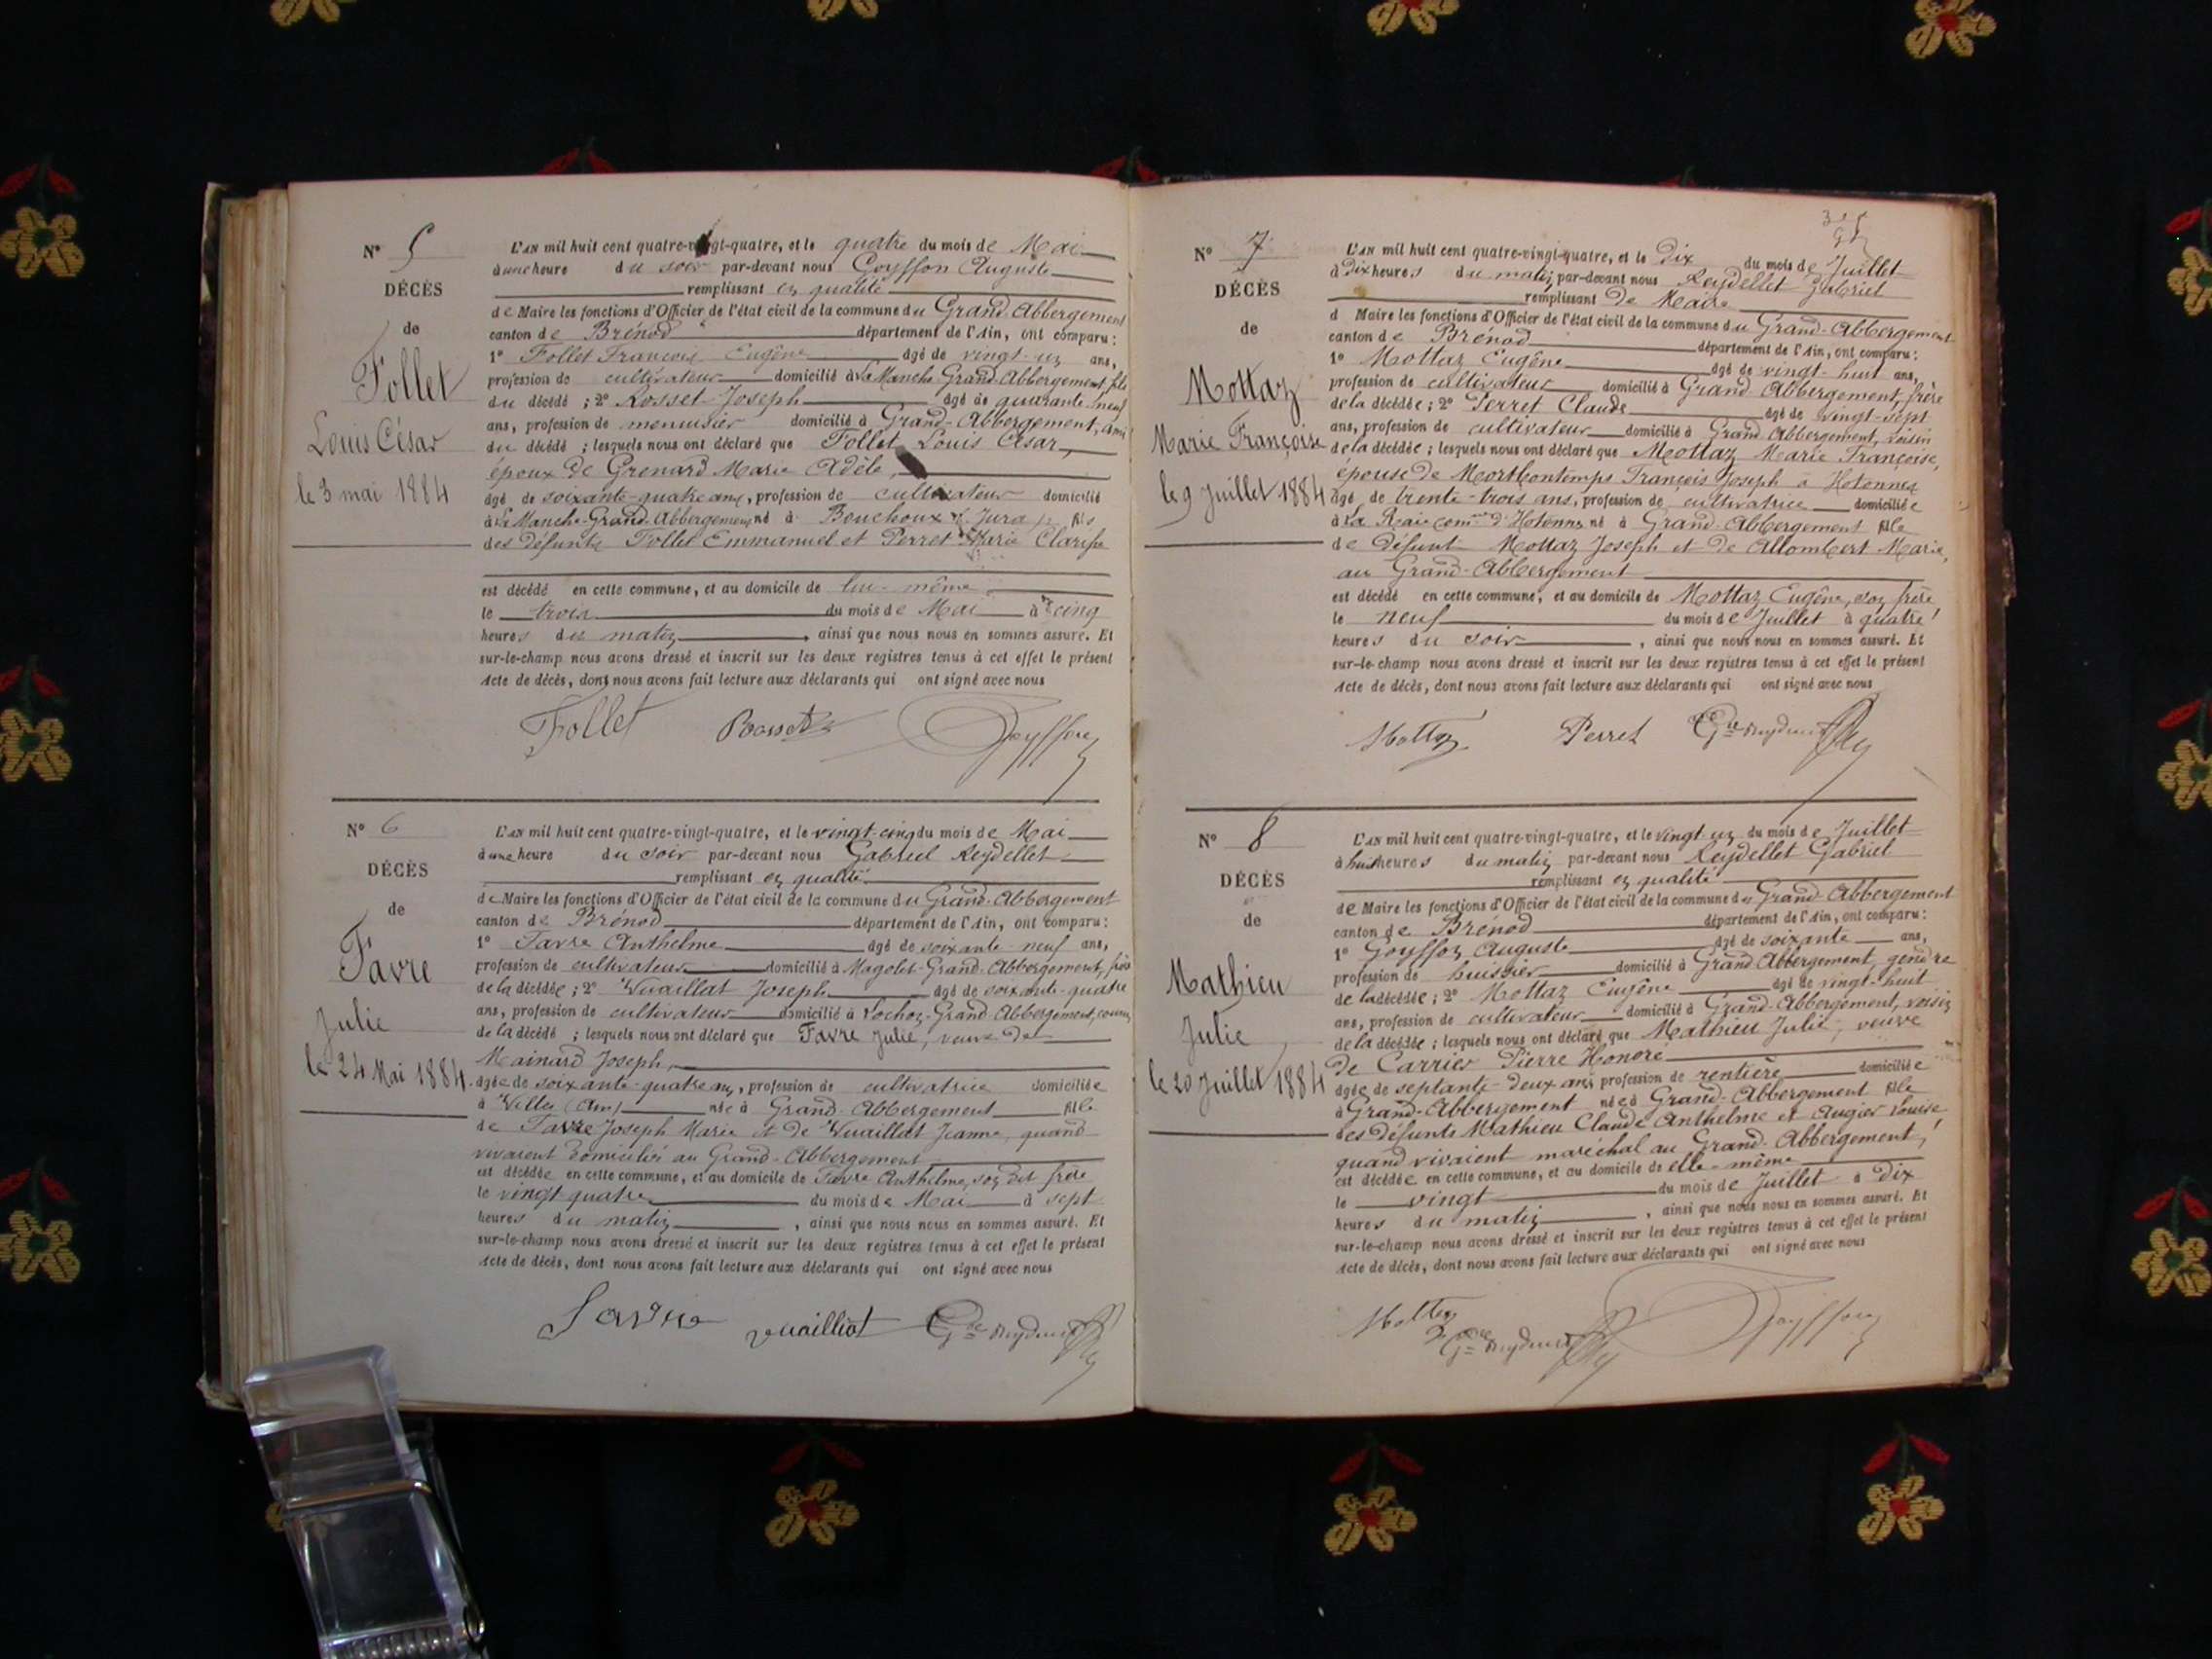 N° 5
DÉCÈS
de
Follet
Louis César
le 3 mai 1884
L'AN mil huit cent quatre-vingt-quatre, et le quatre du mois de Mai
à une heure du soir par-devant nous Goyffon Auguste
remplissant en qualité
de Maire les fonctions d'Officier de l'état civil de la commune du Grand-Abbergement
canton de Brénod département de l'Ain, ont comparu :
1° Follet François Eugène âgé de vingt-un ans,
profession de cultivateur domicilié à La Manche Grand-Abbergement, fils
du décédé ; 2° Rosset Joseph âgé de quarante-neuf
ans, profession de menuisier domicilié à Grand-Abbergement, ami
du décédé ; lesquels nous ont déclaré que Follet Louis César,
époux de Grenard Marie Adèle,
âgé de soixante-quatre ans, profession de cultivateur domicilié
à La Manche-Grand-Abbergement né à Bouchoux (Jura) fils
des défunts Follet Emmanuel et Perret Marie Clarisse
est décédé en cette commune, et au domicile de lui-même
le trois du mois de Mai à cinq
heures du matin, ainsi que nous nous en sommes assuré. Et
sur-le-champ nous avons dressé et inscrit sur les deux registres tenus à cet effet le présent
Acte de décès, dont nous avons fait lecture aux déclarants qui ont signé avec nous
Follet Rosset Goyffon
N° 6
DÉCÈS
de
Favre
Julie
le 24 Mai 1884.
L'AN mil huit cent quatre-vingt-quatre, et le vingt-cinq du mois de Mai
à une heure du soir par-devant nous Gabriel Reydellet
remplissant en qualité
de Maire les fonctions d'Officier de l'état civil de la commune du Grand-Abbergement
canton de Brénod département de l'Ain, ont comparu :
1° Favre Anthelme âgé de soixante-neuf ans,
profession de cultivateur domicilié à Magolet-Grand-Abbergement, frère
de la décédée ; 2° Vuaillat Joseph âgé de soixante-quatre
ans, profession de cultivateur domicilié à Lochoz-Grand-Abbergement, cousin
de la décédé ; lesquels nous ont déclaré que Favre Julie, veuve de
Mainard Joseph,
âgée de soixante-quatre ans, profession de cultivatrice domiciliée
à Villes (Ain) née à Grand-Abbergement fille
de Favre Joseph Marie et de Vuaillat Jeanne, quand
vivaient domiciliés au Grand-Abbergement
est décédée en cette commune, et au domicile de Favre Anthelme, son dit frère
le vingt quatre du mois de Mai à sept
heures du matin, ainsi que nous nous en sommes assuré. Et
sur-le-champ nous avons dressé et inscrit sur les deux registres tenus à cet effet le présent
Acte de décès, dont nous avons fait lecture aux déclarants qui ont signé avec nous
Favre vuailliat Gel Reydellet
N° 7
DÉCÈS
de
Mottaz
Marie Françoise
le 9 Juillet 1884
L'AN mil huit cent quatre-vingt-quatre, et le dix du mois de Juillet
à dix heures du matin par-devant nous Reydellet Gabriel
remplissant de Maire
d Maire les fonctions d'Officier de l'état civil de la commune du Grand-Abbergement
canton de Brénod département de l'Ain, ont comparu :
1° Mottaz Eugène âgé de vingt-huit ans,
profession de cultivateur domicilié à Grand-Abbergement, frère
de la décédée ; 2° Perret Claude âgé de vingt-sept
ans, profession de cultivateur domicilié à Grand Abbergement, voisin
de la décédée ; lesquels nous ont déclaré que Mottaz Marie Françoise,
épouse de Mortcontemps François Joseph à Hotonnes
âgé de trente-trois ans, profession de cultivatrice domiciliée
à La com d'Hotonnes né à Grand-Abbergement fille
de défunt Mottaz Joseph et de Allombert Marie,
au Grand-Abbergement
est décédé en cette commune, et au domicile de Mottaz Eugène, son frère
le neuf du mois de Juillet à quatre
heures du soir, ainsi que nous nous en sommes assuré. Et
sur-le-champ nous avons dressé et inscrit sur les deux registres tenus à cet effet le présent
Acte de décès, dont nous avons fait lecture aux déclarants qui ont signé avec nous
Mottaz Perret Gel Reydellet
N° 8
DÉCÈS
de
Mathieu
Julie
le 20 Juillet 1884
L'AN mil huit cent quatre-vingt-quatre, et le vingt un du mois de Juillet
à huit heures du matin par-devant nous Reydellet Gabriel
remplissant en qualité
de Maire les fonctions d'Officier de l'état civil de la commune du Grand-Abbergement
canton de Brénod département de l'Ain, ont comparu :
1° Goyffon Auguste âgé de soixante ans,
profession de huissier domicilié à Grand Abbergement, gendre
de la décédée ; 2° Mottaz Eugène âgé de vingt-huit
ans, profession de cultivateur domicilié à Grand-Abbergement, voisin
de la décédée ; lesquels nous ont déclaré que Mathieu Julie, veuve
de Carrier Pierre Honoré
âgée de septante-deux ans profession de rentière domiciliée
à Grand-Abbergement née à Grand-Abbergement fille
des défunts Mathieu Claude Anthelme et Augier Louise
quand vivaient maréchal au Grand-Abbergement,
est décédée en cette commune, et au domicile de elle-même
le vingt du mois de Juillet à dix
heures du matin, ainsi que nous nous en sommes assuré. Et
sur-le-champ nous avons dressé et inscrit sur les deux registres tenus à cet effet le présent
Acte de décès, dont nous avons fait lecture aux déclarants qui ont signé avec nous
Mottaz Goyffon
Gel Reydellet